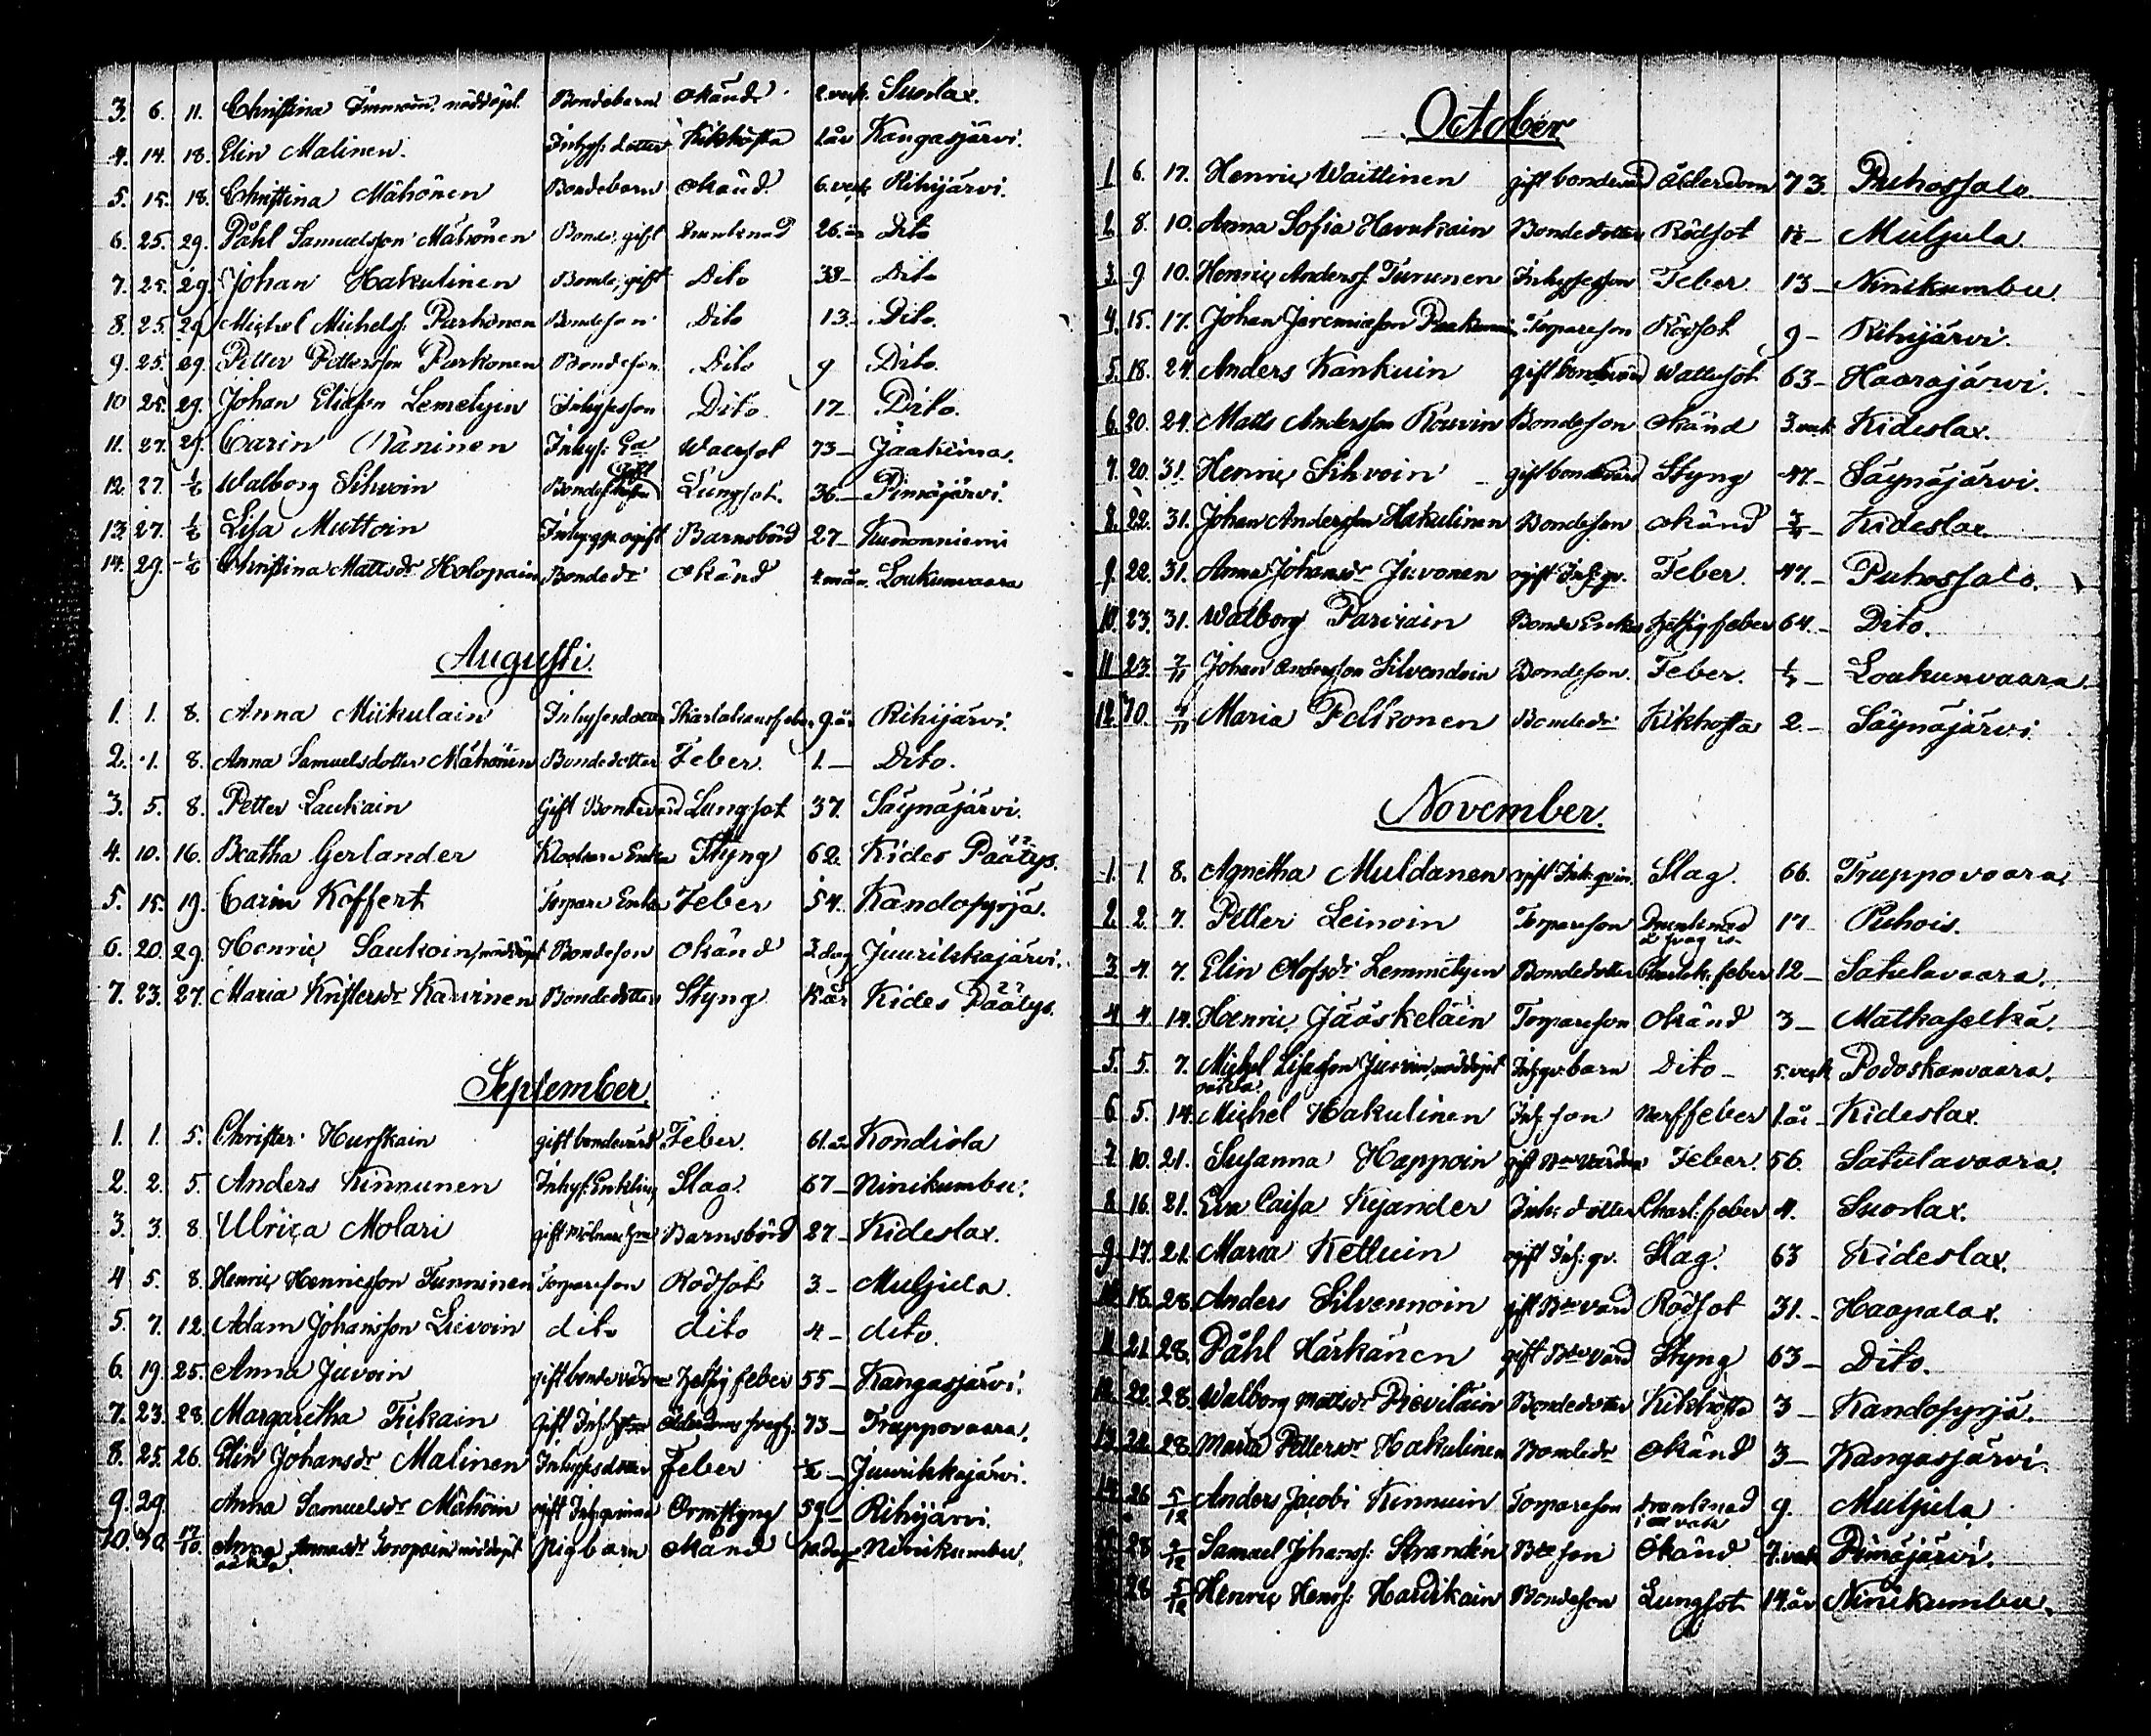 3. 6. 11. Christina Immoin. nöddöpt. Bondebarn okänd 2. veck. Suorlax.
4. 14. 18. Elin Malinen. Inhys: dotter Kikhosta 1 år Kangasjärvi.
5. 15. 18. Christina Mähönen Bondebarn okänd 6. veck Rihijärvi.
6. 25. 29. Påhl Samuelsson Mähönen Bonde, gift Drunknad 26. år Dito
7. 25. 29. Johan Hakulinen Bonde, gift Dito 38– Dito
8. 25. 29. Michel Michelss: Parkonen Bondeson Dito 13– Dito.
9. 25. 29. Petter Pettersson Parkonen Bondeson Dito 9 Dito.
10 25. 29. Johan Eliasson Lemetyin Inhysesson Dito. 17 Dito.
11. 27. 29. Carin Näninen Inhys: Watersot 73– Jaakima.
12. 27. Walborg Sihvoin Lungsot. 36.– Pimäjärvi.
13. 27. Lisa Muttoin ogift Barnsbörd 27– Kumonniemi
14. 29. Christina Mattsdr Holopain Bondedr okänd 4. mån. Loukunvaara
Augusti.
1. 1. 8. Anna Miikulain Inhysesdotter Skarlakansfeber 9. år Rihijärvi.
2. 1. 8. Anna Samuelsdotter Mähönen Bondedotter Feber. 1.– Dito.
3. 5. 8. Petter Laukain Gift Bondevärd Lungsot 37. Säynäjärvi.
4. 10. 16. Beatha Gerlander Klockare Enka Styng 62. Kides Päätys.
5. 15. 19. Carin Koffert Torpare Enka Feber 54. Kandosyrjä.
6. 20. 29. Henric Saukoin, nöddöpt Bondeson okänd 3. dag Juurikkajärvi.
7. 23. 27. Maria Kristersdr Kauvinen Bondedotter Styng Kides Päätys.
September.
1. 1. 5. Christer Hurskain gift bondevärd Feber. 61. år Kondiola
2. 2. 5. Anders Kinnunen Inhys: Enkling Slag. 67– Niinikumbu.
3. 3. 8. Ulrica Molari gift Barnsbörd 27– Kideslax.
4 5. 8. Henric Henricsson Tunninen Torpareson Rödsot 3– Muljula.
5. 7. 12. Adam Johansson Lievoin dito dito 4– dito.
6. 19. 25. Anna Juvoin gift bondevärdinna Hetsig feber 55– Kangasjärvi.
7. 23. 28. Margaretha Tikkain Gift Ålderdoms 73– Trappovaara.
8. 25. 26. Elin Johansdr Malinen Inhysesdotter Feber ½– Juurikkajärvi.
9. 29. Anna Samuelsdr Mähöin gift Inh:qvinna Ormstyng 59– Rihijärvi.
10. 30. 17/10. Anna nöddöpt Pigbarn okänd 10. dagar Niinikumbu.
October
1 6. 17. Henric Waittinen gift bondevärd Ålderdom 73. Puhossalo.
2. 8. 10. Anna Sofia Havukain Bondedotter Rödsot 1½– Muljula.
3. 9 10. Henric Anderss: Turunen Inhysesson Feber 13– Niinikumbu.
4. 15. 17. Johan Jeremiasson Torpareson Rödsot 9– Rihijärvi.
5. 18. 24. Anders Kankuin gift bondevärd Wattusot 63– Haarajärvi.
6. 20. 24. Matts Andersson Rouvin Bondeson okänd 3. veck Kideslax.
7. 20. 31. Henric Sihvoin gift bondevärd Styng 47.– Säynäjärvi.
8. 22. 31. Johan Andersson Hakulinen Bondeson okänd Kideslax.
9. 22. 31. Anna Johansdr Juvonen ogift Inh:qv. Feber. 47.– Puhossalo.
10. 23. 31. Walborg Parviain Bonde Enka Hetsig feber 64.– Dito.
11 23. 7/11 Johan Andersson Silvendoin Bondeson. Feber. Loukunvaara.
12 30. 7/11 Maria Pelkonen Bondedr Kikhosta 2.– Säynäjärvi
November.
1. 1. 8. Agnetha Muldanen ogift Inh:qvin. Slag. 66. Trappovaara.
2. 2. 7. Petter Leinoin Torpareson Drunknad 17 Puhois.
3. 4. 7. Elin Olofsdr Lemmetyen Bondedotter feber 12– Satulavaara.
4 4. 14. Henric Jääskeläin Torpareson okänd 3– Matkaselkä.
5. 5. 7. Michel Lisasson Juvoin, nöddöpt Inh:qv: barn Dito– 5. veck Podoskanvaara.
oäkta.
6. 5. 14. Michel Hakulinen Inh: son Nerffeber 1. år– Kideslax.
7. 10. 21. Susanna Happoin gift Feber. 56. Satulavaara.
8. 16. 21. Eva Caisa Kyander Inh: dotter Charl: feber 4. Suorlax.
9. 17. 21. Maria Kettuin ogift Inh: qv. Slag. 63 Kideslax.
10. 18. 28. Anders Silvennoin gift Bde värd Rödsot 31.– Haapalax.
11. 21. 28. Påhl Härkänen gift Bde värd Styng 63– Dito.
12. 22. 28. Walborg Mattsdr Pievilain Bondedotter Kikhosta 3– Kandosyrjä.
13. 22. 28. Maria Pettersdr Hakulinen Bondedr okänd 3– Kangasjärvi.
14. 26. 5/12 Anders Jacobi Kinnuin Torpareson drunknad 9. Muljula
28. 5/12 Samuel Johanss: Strandén Bde son Okänd 7. veck Pimäjärvi.
28 5/12 Henric Henrss: Hartikain Bondeson Lungsot 14. år Niinikumbu.